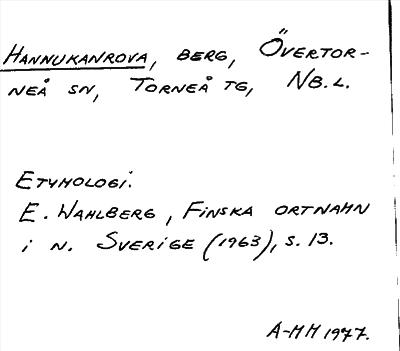 HANNUKANROVA, BERG, ÖVERTOR-
NEÅ SN, TORNEÅ TG, NB. L.
ETYMOLOGI.
E. WAHLBERG, FINSKA ORTNAMN
I N. SVERIGE (1963), S. 13.
A-MH 1977.